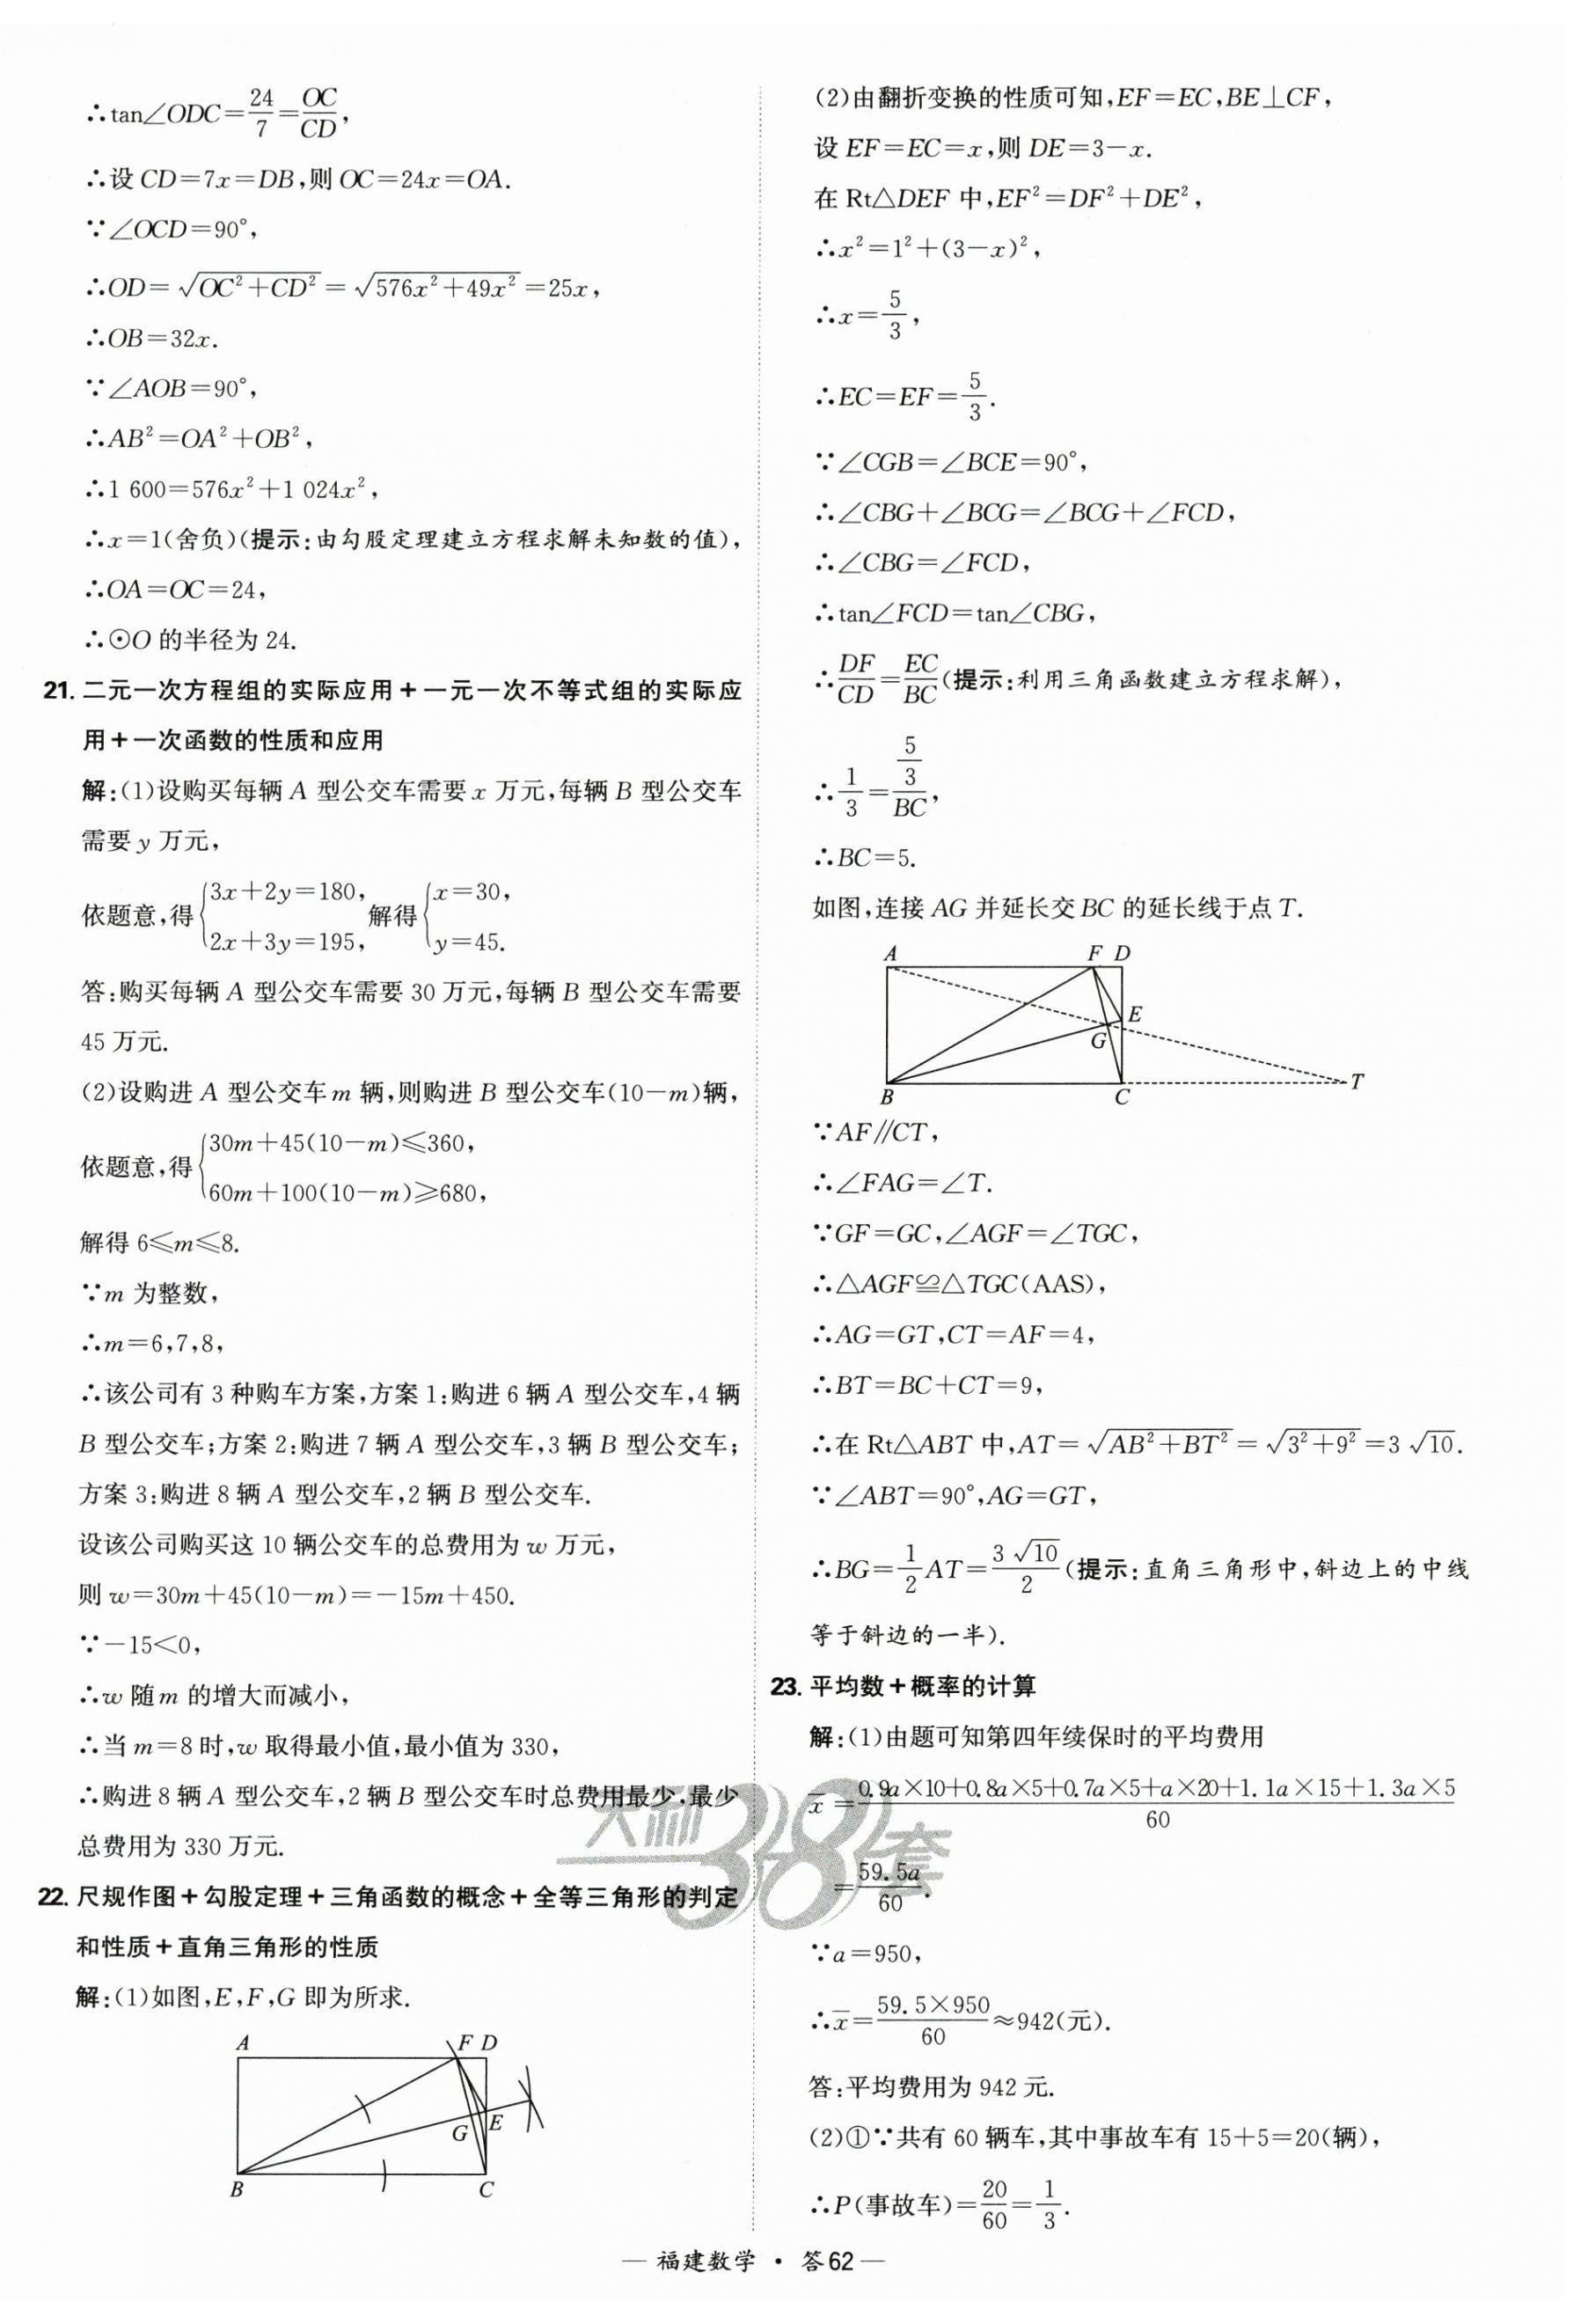 ∴tan∠ODC=24/7=OC/CD,
∴设 CD=7x=DB,则 OC=24x=OA.
∵∠OCD=90°,
∴OD=√(OC²+CD²)=√(576x²+49x²)=25x,
∴OB=32x.
∵∠AOB=90°,
∴AB²=OA²+OB²,
∴1 600=576x²+1 024x²,
∴x=1(舍负)(提示:由勾股定理建立方程求解未知数的值),
∴OA=OC=24,
∴⊙O 的半径为 24.
21. 二元一次方程组的实际应用+一元一次不等式组的实际应
用+一次函数的性质和应用
解:(1)设购买每辆 A 型公交车需要 x 万元,每辆 B 型公交车
需要 y 万元,
依题意,得{3x+2y=180, 2x+3y=195, 解得{x=30, y=45.
答:购买每辆 A 型公交车需要 30 万元,每辆 B 型公交车需要
45 万元.
(2)设购进 A 型公交车 m 辆,则购进 B 型公交车(10-m)辆,
依题意,得{30m+45(10-m)≤360, 60m+100(10-m)≥680,
解得 6≤m≤8.
∵m 为整数,
∴m=6,7,8,
∴该公司有 3 种购车方案,方案 1:购进 6 辆 A 型公交车,4 辆
B 型公交车;方案 2:购进 7 辆 A 型公交车,3 辆 B 型公交车;
方案 3:购进 8 辆 A 型公交车,2 辆 B 型公交车.
设该公司购买这 10 辆公交车的总费用为 w 万元,
则 w=30m+45(10-m)=-15m+450.
∵-15<0,
∴w 随 m 的增大而减小,
∴当 m=8 时,w 取得最小值,最小值为 330,
∴购进 8 辆 A 型公交车,2 辆 B 型公交车时总费用最少,最少
总费用为 330 万元.
22. 尺规作图+勾股定理+三角函数的概念+全等三角形的判定
和性质+直角三角形的性质
解:(1)如图,E,F,G 即为所求.
A F D
G E
B C
(2)由翻折变换的性质可知,EF=EC,BE⊥CF,
设 EF=EC=x,则 DE=3-x.
在 Rt△DEF 中,EF²=DF²+DE²,
∴x²=1²+(3-x)²,
∴x=5/3,
∴EC=EF=5/3.
∵∠CGB=∠BCE=90°,
∴∠CBG+∠BCG=∠BCG+∠FCD,
∴∠CBG=∠FCD,
∴tan∠FCD=tan∠CBG,
∴DF/CD=EC/BC(提示:利用三角函数建立方程求解),
∴1/3=(5/3)/BC,
∴BC=5.
如图,连接 AG 并延长交 BC 的延长线于点 T.
A F D
E
G
T
B C
∵AF∥CT,
∴∠FAG=∠T.
∵GF=GC,∠AGF=∠TGC,
∴△AGF≌△TGC(AAS),
∴AG=GT,CT=AF=4,
∴BT=BC+CT=9,
∴在 Rt△ABT 中,AT=√(AB²+BT²)=√(3²+9²)=3√10.
∵∠ABT=90°,AG=GT,
∴BG=1/2AT=3√10/2(提示:直角三角形中,斜边上的中线
等于斜边的一半).
23. 平均数+概率的计算
解:(1)由题可知第四年续保时的平均费用
x̄=(0.9a×10+0.8a×5+0.7a×5+a×20+1.1a×15+1.3a×5)/60
=59.5a/60.
∵a=950,
∴x̄=59.5×950/60≈942(元).
答:平均费用为 942 元.
(2)①∵共有 60 辆车,其中事故车有 15+5=20(辆),
∴P(事故车)=20/60=1/3.
天利38套
— 福建数学 · 答62 —